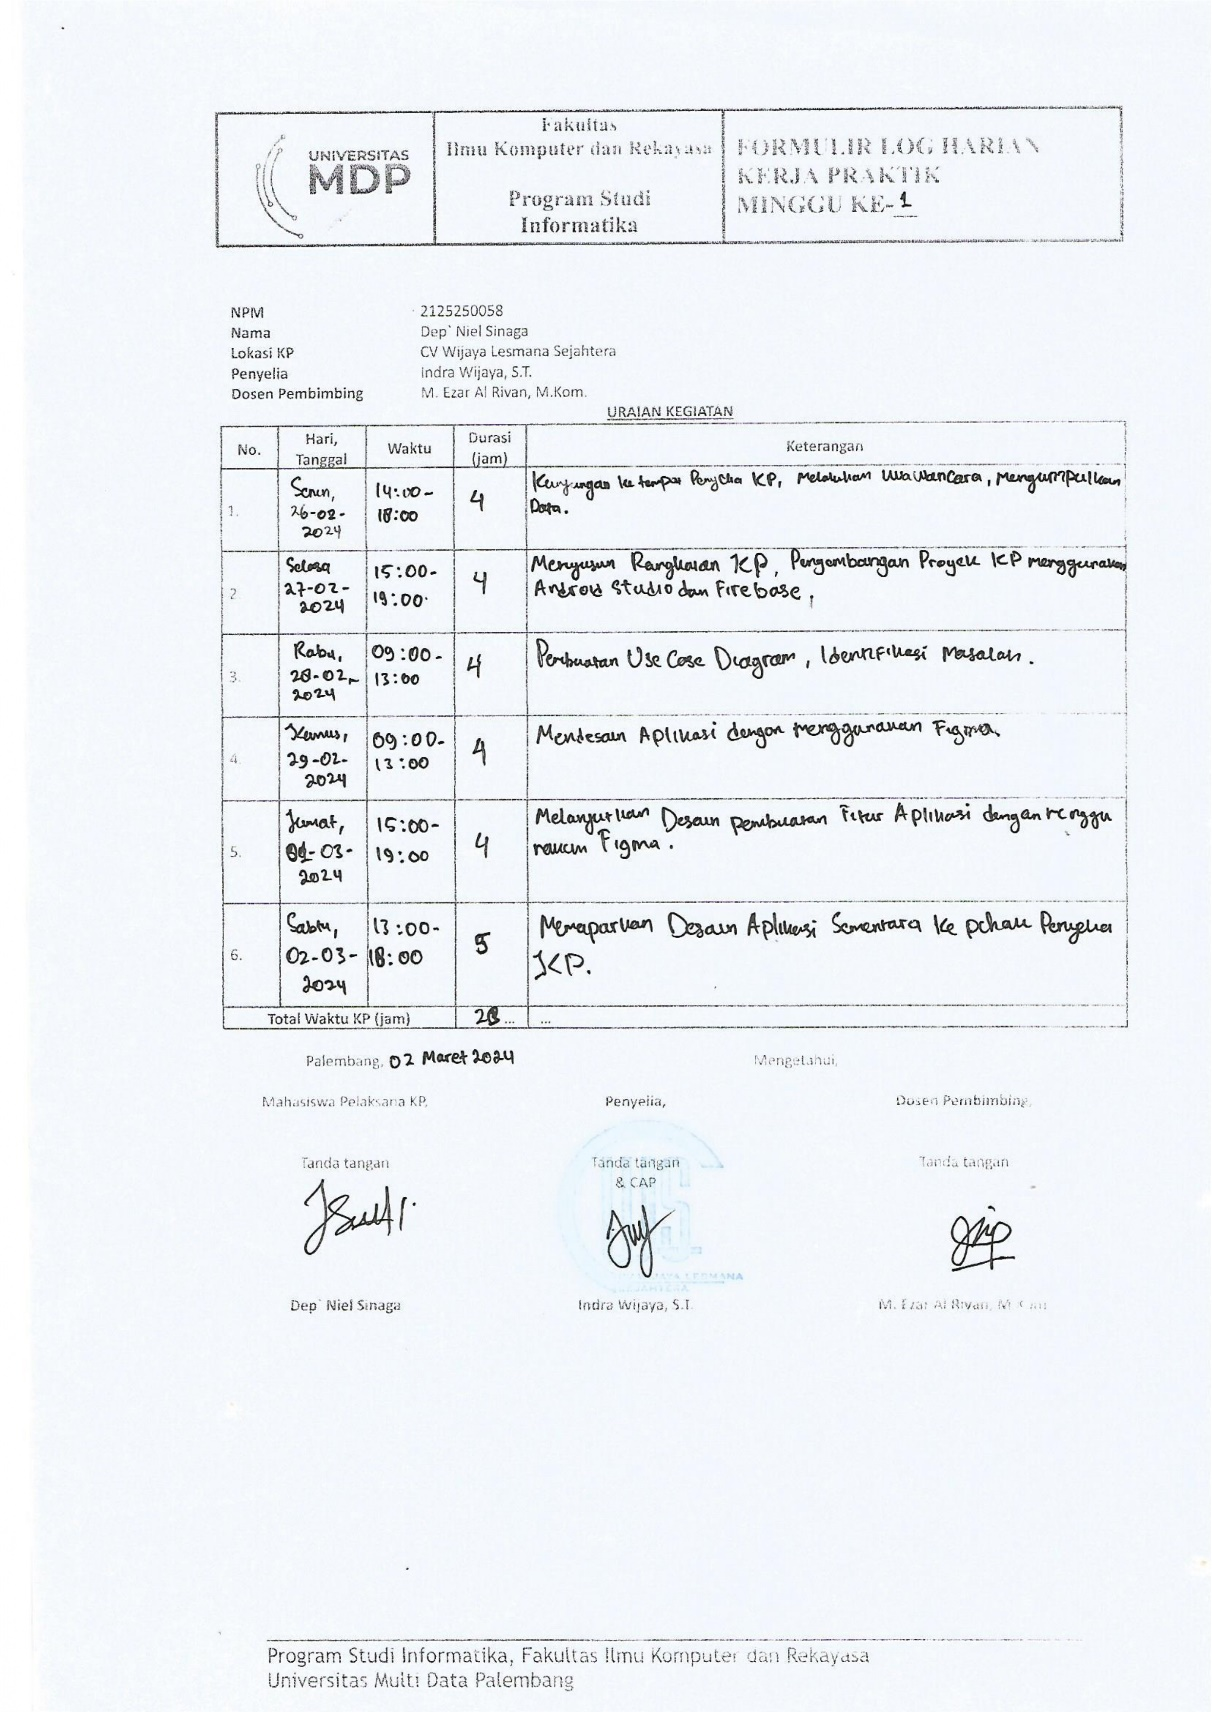 UNIVERSITAS
MDP
Fakultas
Ilmu Komputer dan Rekayasa
Program Studi
Informatika
FORMULIR LOG HARIAN
KERJA PRAKTIK
MINGGU KE-1
NPM 2125250058
Nama Dep` Niel Sinaga
Lokasi KP CV Wijaya Lesmana Sejahtera
Penyelia Indra Wijaya, S.T.
Dosen Pembimbing M. Ezar Al Rivan, M.Kom.
URAIAN KEGIATAN
No. Hari, Tanggal Waktu Durasi (jam) Keterangan
1. Senin, 26-02-2024 14:00-18:00 4 Kunjungan ke tempat Penyelia KP, Melakukan Wawancara, Mengumpulkan
Data.
2 Selasa 27-02-2024 15:00-19:00 4 Menyusun Rangkaian KP, Pengembangan Proyek KP menggunakan
Android Studio dan Firebase.
3. Rabu, 28-02-2024 09:00-13:00 4 Pembuatan Use Case Diagram, Identifikasi Masalah.
4. Kamis, 29-02-2024 09:00-13:00 4 Mendesain Aplikasi dengan menggunakan Figma.
5. Jumat, 01-03-2024 15:00-19:00 4 Melanjutkan Desain pembuatan Fitur Aplikasi dengan menggu
nakan Figma.
6. Sabtu, 02-03-2024 13:00-18:00 5 Memaparkan Desain Aplikasi Sementara ke pihak Penyelia
KP.
Total Waktu KP (jam) ... ...
Palembang, 02 Maret 2024 Mengetahui,
Mahasiswa Pelaksana KP, Penyelia, Dosen Pembimbing,
Tanda tangan Tanda tangan Tanda tangan
& CAP
Dep` Niel Sinaga Indra Wijaya, S.T. M. Ezar Al Rivan, M.Kom
Program Studi Informatika, Fakultas Ilmu Komputer dan Rekayasa
Universitas Multi Data Palembang